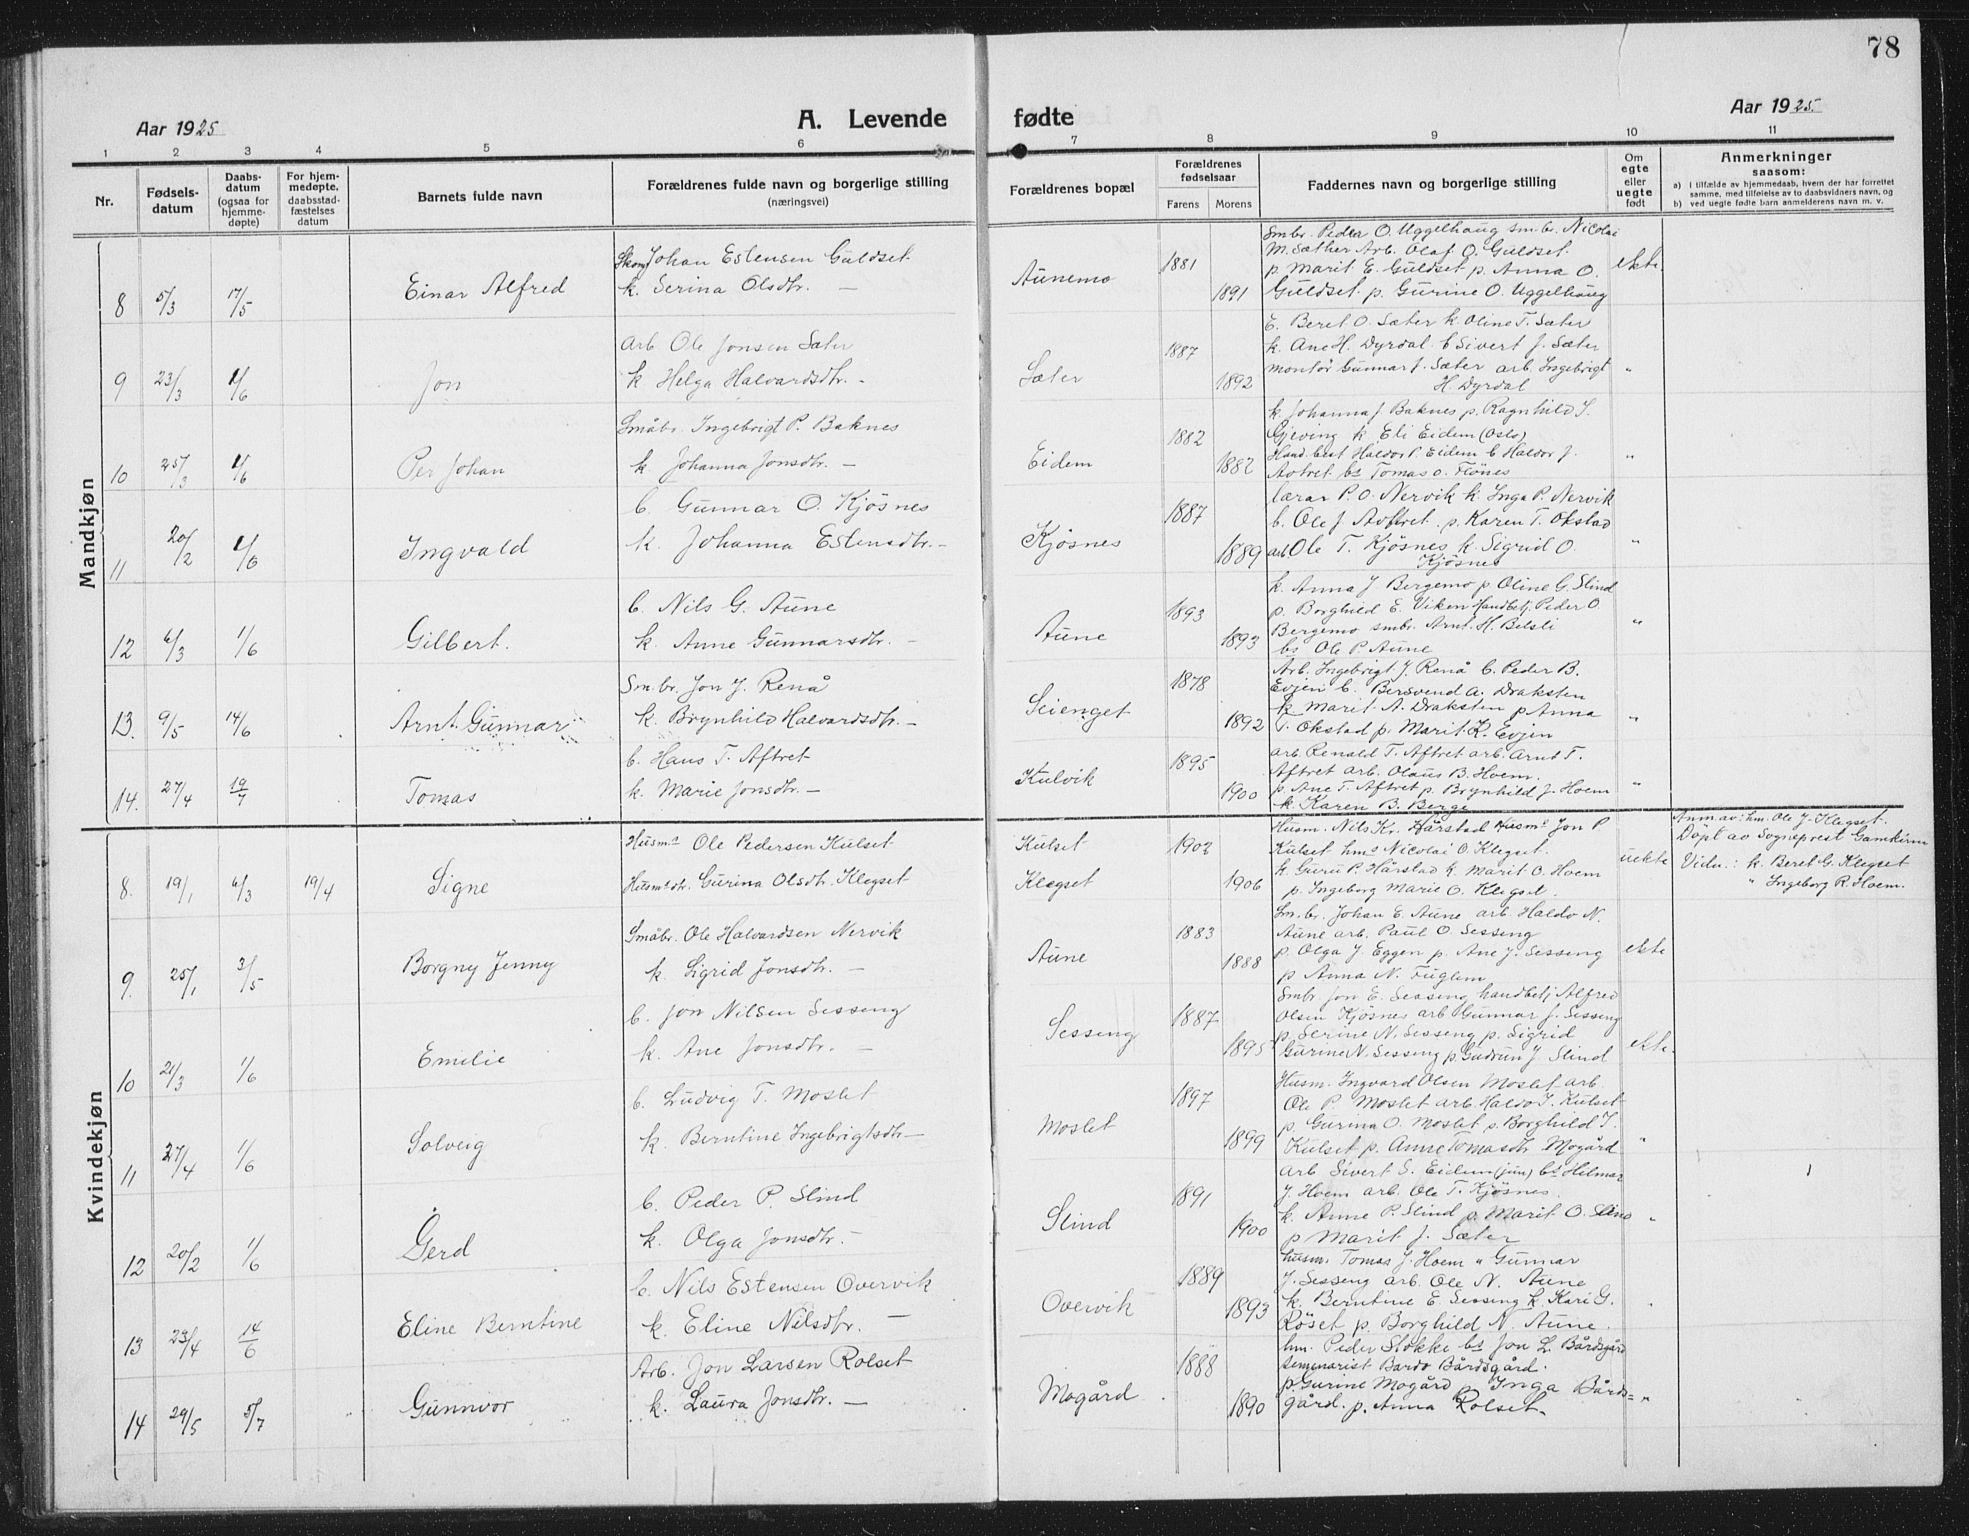 78
Aar 1925
A. Levende
fødte
Aar 1925.
1 2 3 4 5 6 7 8 9 10 11
Nr.
Fødsels-
datum
Daabs-
datum
(ogsaa for
hjemme-
døpte)
For hjem-
medøpte,
daabsstad-
fæstelses
datum
Barnets fulde navn
Forældrenes fulde navn og borgerlige stilling
(næringsvei)
Forældrenes bopæl
Forældrenes
fødselsaar
Farens Morens
Faddernes navn og borgerlige stilling
Om
egte
eller
uegte
født
Anmerkninger
saasom:
a) I tilfælde av hjemmedaab, hvem der har forrettet
samme, med tilføielse av to daabsvidners navn, og
b) ved uegte fødte barn anmelderens navn m. v.
Mandkjøn
8 5/3 17/5 Einar Alfred
Skom Johan Estensen Guldset
k. Serina Olsdtr. —
Aunemo 1881 1891
Smbr. Peder O. Uggelhaug smbr. Nicolai
M. Sæther Arb. Olaf O. Guldset
p. Marit E. Guldset p. Anna O.
Guldset p. Gurine O. Uggelhaug
ekte.
9 23/3 1/6 Jon
Arb Ole Jonsen Sæter
k Helga Halvardsdtr. -
Sæter 1887 1892
E. Beret O. Sæter k. Oline T. Sæter
k. Ane H. Dyrdal b Sivert J. Sæter
montør Gunnar J. Sæter arb. Ingebrigt
H. Dyrdal
"
10 25/3 1/6 Per Johan
Småbr. Ingebrigt P. Baknes
k. Johanna Jonsdtr. —
Eidem 1882 1882
k. Johanna J. Baknes p. Ragnhild I.
Gjeving k. Eli Eidem (Oslo)
Hand.best Haldor P. Eidem b Haldor J.
Avtret bs Tomas O. Flönes
"
11 20/2 1/6 Ingvald
b. Gunnar O. Kjøsnes
k. Johanna Estensdtr. -
Kjøsnes 1887 1889
lærar P. O. Nervik k. Inga P. Nervik
b. Ole J. Avftret. p. Karen T. Okstad
arb Ole T. Kjøsnes k. Sigrid O.
Kjøsnes
"
12 6/3 1/6 Gilbert.
b. Nils G. Aune
k. Anne Gunnarsdtr. -
Aune 1893 1893
k. Anna J Bergemo p Oline G. Slind
p. Borghild E. Viken Handbetj. Peder O.
Bergemo smbr. Arnt. H. Belsli
bs Ole P. Aune
"
13. 9/5 14/6 Arnt. Gunnar
Sm.br. Jon J. Renå
k. Brynhild Halvardsdtr. -
Seienget 1878 1892
Arb. Ingebrigt J. Renå b. Peder B.
Evjen b. Bersvend A. Draksten
k Marit A. Draksten p Anna
T. Okstad p. Marit K. Evjen
"
14. 27/4 19/7 Tomas
b. Hans T. Aftret
k. Marie Jonsdtr. —
Kulvik 1895 1900
arb. Renald T. Aftret arb. Arnt T.
Aftret arb. Olaus B. Hoem.
p. Ane T. Aftret p. Brynhild J. Hoem
k. Karen B. Berge
"
Kvindekjøn
8. 19/1 6/3 19/4 Signe
Husm. Ole Pedersen Kulset
Husm.dtr. Gurina Olsdtr. Klegset
Kulset
Klegset
1902 1906
Husm. Nils Kr. Hårstad Husm. Jon P
Kulset hms Nicolai O. Klegset.
k. Guru P. Hårstad k. Marit O. Hoem
p. Ingeborg Marie O. Klegset.
uekte
Anm. av: hm. Ole J. Klegset.
Döpt av Sogneprest Gamkinn
Vidn.: k. Beret G. Klegset
" Ingeborg R. Hoem.
9. 25/1 3/5 Borgny Jenny
Småbr. Ole Halvardsen Nervik
k. Sigrid Jonsdtr. —
Aune 1883 1888
Sm.br. Johan E. Aune arb. Haldo N.
Aune arb. Paul O. Sesseng
p. Olga J. Eggen p. Ane J. Sesseng
p Anna N. Fuglem
ekte
10 21/3 1/6 Emelie
b. Jon Nilsen Sesseng
k. Ane Jonsdtr. —
Sesseng 1887 1895
Smbr Jon E. Sesseng handbetj Alfred
Olsen Kjøsnes arb Gunnar J. Sesseng
p. Serine N. Sesseng p. Sigrid
Gurine N. Sesseng p. Gudrun J. Slind
ekte.
11 27/4 1/6 Solveig
b. Ludvig T. Moslet
k. Berntine Ingebrigtsdtr —
Moslet 1897 1899
Husm. Ingvard Olsen Moslet arb.
Ole P. Moslet arb. Haldo I. Kulset
p. Gurina O. Moslet p. Borghild I.
Kulset p. Anne Tomasdtr Mogård
"
12 20/2 1/6 Gerd
b. Peder P. Slind
k. Olga Jonsdtr. -
Slind 1891 1900
arb Sivert S. Eidem (jun) bs Hilmar
J. Hoem arb. Ole T. Kjøsnes.
k. Anne P. Slind p. Marit O. Slind
p Marit J. Sæter
"
13 23/4 14/6 Eline Berntine
b. Nils Estensen Overvik
k. Eline Nilsdtr. —
Overvik 1889 1893
husm. Tomas J. Hoem " Gunnar
J. Sesseng arb. Ole N. Aune
k. Berntine E. Sesseng k. Kari G.
Röset p. Borghild N. Aune.
"
14 29/5 5/7 Gunnvor
Arb. Jon Larsen Rolset
k. Laura Jonsdtr. —
Mogård 1888 1890
hm. Peder Stokke bs Jon L. Bårdsgård
seminarist Bardo Bårdsgård.
p. Gurine Mogård p. Inga Bårds-
gård. p. Anna Rolset.
"